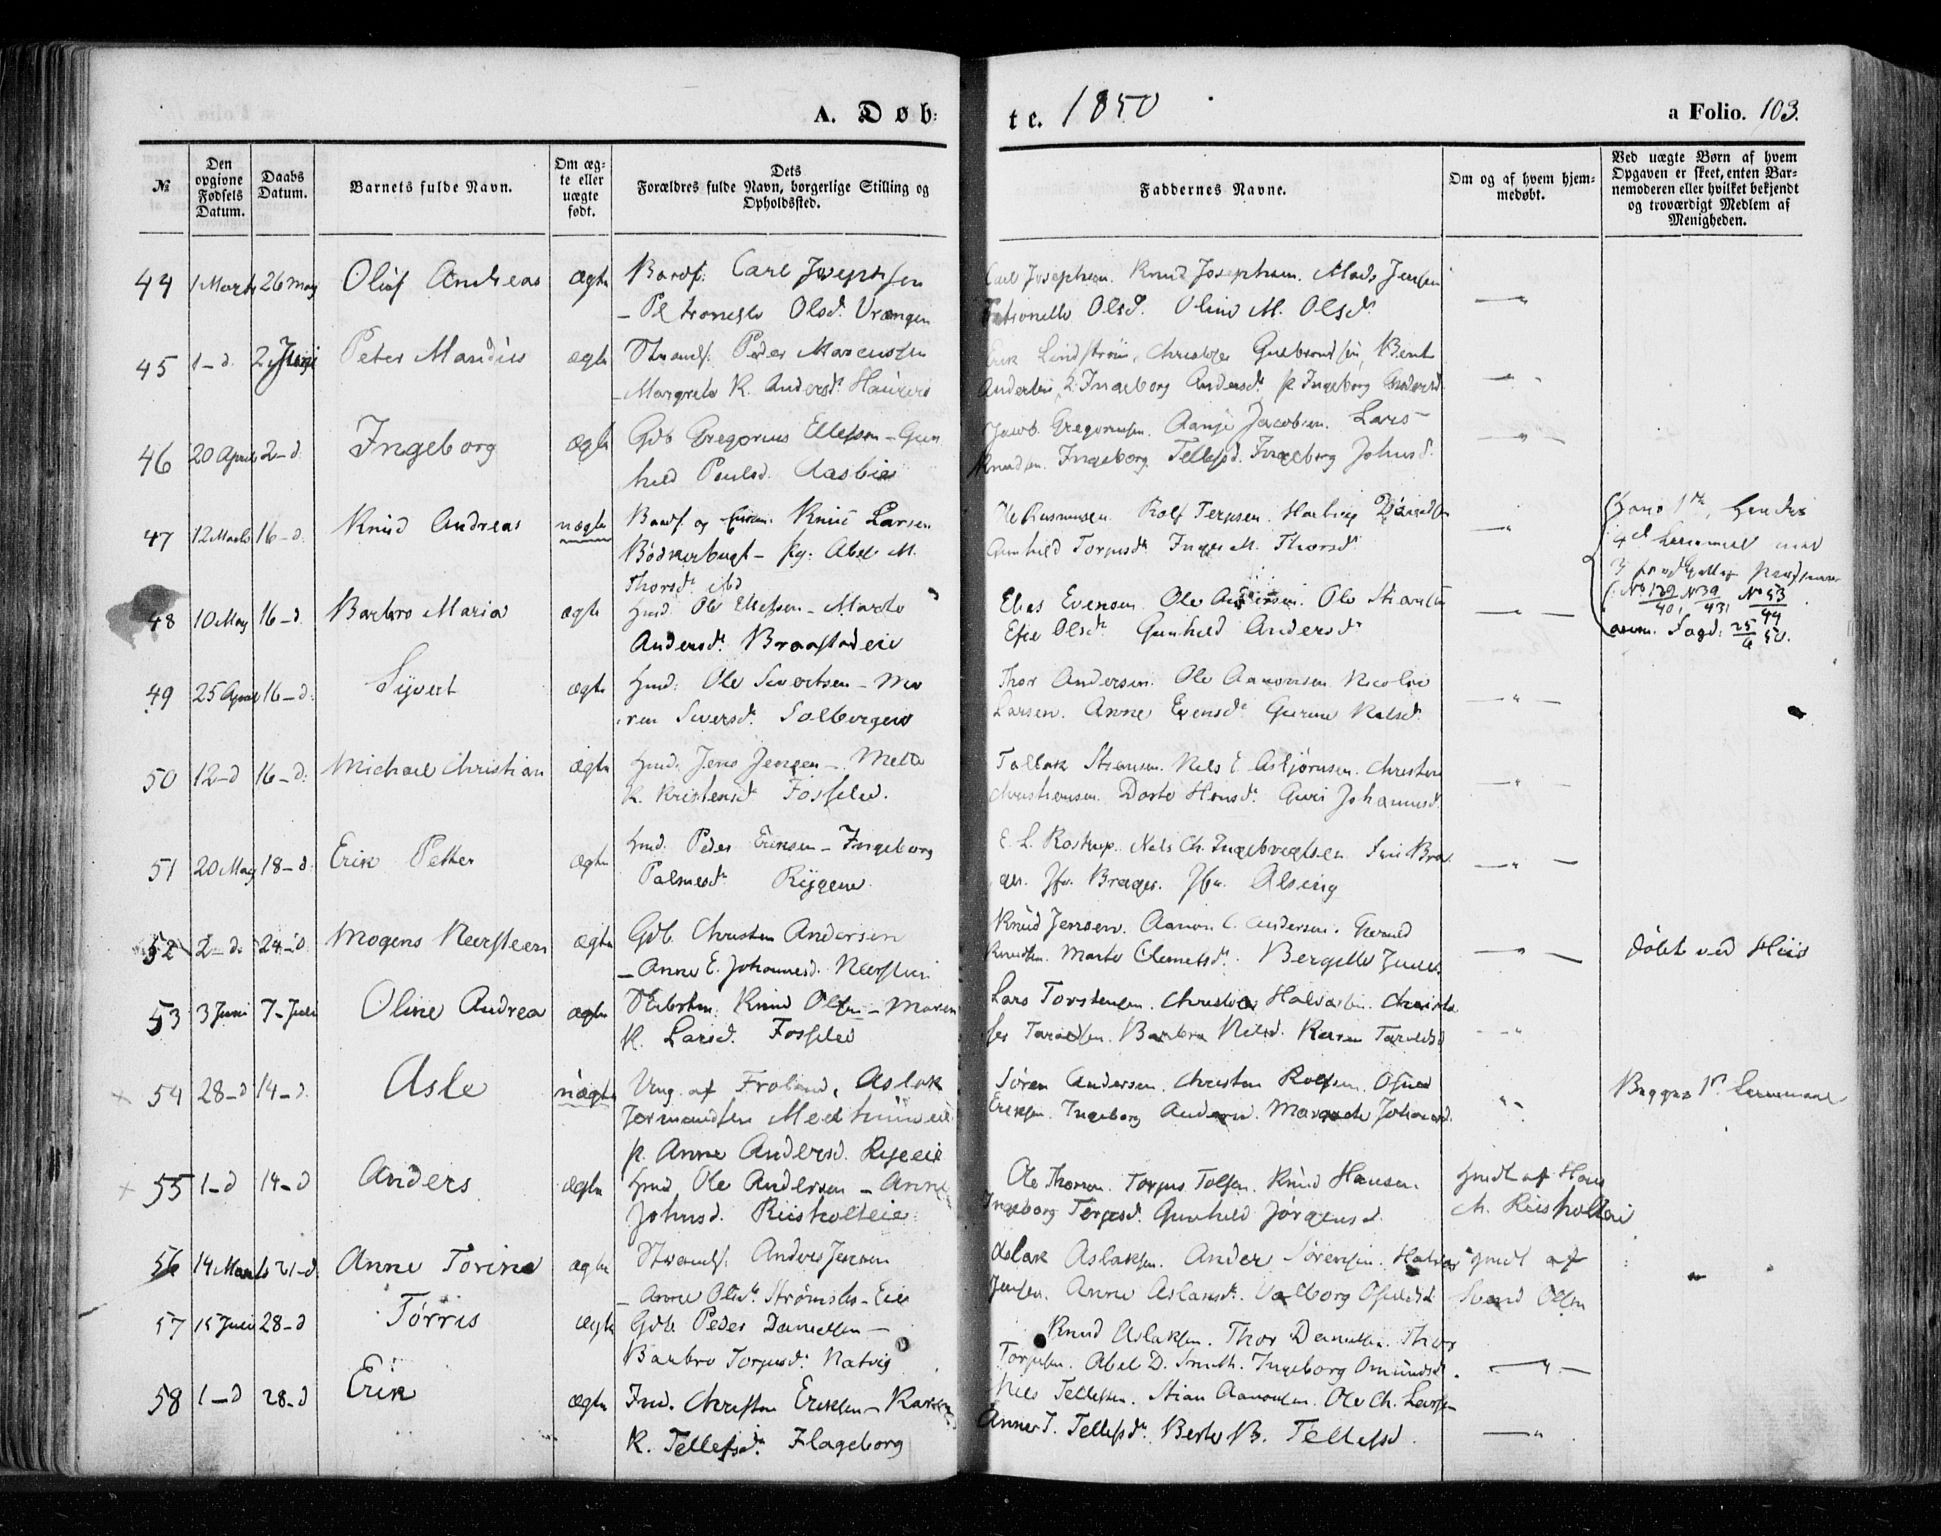 A. Døb:
te. 1850
a Folio. 103.
№
Den opgivne Fødsels Datum.
Daabs Datum.
Barnets fulde Navn.
Om ægte eller uægte født.
Dets Forældres fulde Navn, borgerlige Stilling og Opholdssted.
Faddernes Navne.
Om og af hvem hjemmedøbt.
Ved uægte Børn af hvem Opgaven er skeet, enten Barnemoderen eller hvilket bekjendt og troværdigt Medlem af Menigheden.
44 1 Marts 26 May Oluf Andreas ægte Carl Josephsen
Petronelle Olsd. Vrængen
Carl Josephsen. Knud Josephsen. Mads Jensen
Petronelle Olsd. Oline M. Olsd.
45 1-d. 2 Juni Peter Mandius ægte Strands. Peder Marcussen
Margrete K. Andersd.
Erik Lindstrøm, Christopher Gulbrandsen, Bent
Andersen, Ingeborg Andersd. p. Ingeborg
46 20 April 2-d. Ingeborg ægte Gdb Gregorius Ellefsen - Gun
hild Poulsd. Aasbie
Jacob Gregoriussen. Aanje Jacobsen. Lars
Knudsen. Ingeborg Tellefsd. Ingeborg Johnsd.
47 12 Marts 16-d. Knud Andreas uægte og Knud Larsen
Bødkerbugt - pg: Abel M.
Thorsd. ibd
Ole Rasmussen. Rolf Terjesen.
Gunhild Torjusd. Inger M. Thorsd.
Hans 1ste, hendes
4d Leiermaal
No 139/40, No 39/43, No 53/44
anm. Fogd. 25/6 50.
48 10 May 16-d. Barbro Maria ægte Hmd. Ole Ellefsen - Marte
Andersd. Braastadeie
Elias Evensen. Ole Andersen. Ole
Efie Olsd. Gunhild Andersd.
49 25 April 16-d. Syvert ægte Hmd: Ole Sivertsen - Ma
ren Siversd. Solbergeie
Thor Andersen. Ole Aanonsen Nicolai
Larsen. Anne Evensd. Gurine Nilsd.
50 12-d 16-d. Michael Christian ægte Hmd: Jens Jensen - Mette
K. Kristensd. Fosselie.
Tallak Stiansen. Nels E. Asbjørnsen. Christen
Christensen. Dorte Hansd. Guri Johannesd.
51 20 May 18-d. Erik Petter ægte Hmd. Peder Eriksen - Ingeborg
Palmesd. Rygene.
E. L. Rostrup. Nels Ch. Ingebregtsen
Jfr. Brager. Jfr. Alsing
52 2-d. 24-d. Mogens Neersteen ægte Gdb. Christen Andersen
- Anne E. Johannesd. Neersteen
Knud Jensen. Aanon C. Andersen.
Knudsen. Marte Clemetsd. Bergitte
døbt ved Hiis
53 3 Juni 7-Juli Oline Andrea ægte Knud Olsen - Maren
K. Larsd. Fosselie
Lars Torstensen. Christen Halvorsen. Christo
fer Taraldsen. Barbra Nilsd. Karen Taraldsd
54 28-d 14-d. Asle uægte Ung. af Froland, Aslak
p. Anne Andersd. Rygeeie
Søren Andersen. Christen Rolfsen.
Eriksen. Ingeborg Andersd. Margrete Johannesd.
Begges 1ste Leiermaal
55 1-d 14-d Anders ægte Hmd Ole Andersen - Anne
Johnsd. Riisholteie
Ole Thorsen. Torjus Tolfsen. Knud Hansen.
Ingeborg Terjesd. Gunhild Jørgensd.
hmdt af Hans
Ch. Riisholteie
56 14 Marts 21-d. Anne Torine ægte Strands. Anders Jensen
- Anne Olsd. Strømsbo-Eie
Aslak Aslaksen. Anders Sørensen. Halvor
Jensen. Anne Aslaksd. Valborg
hmdt af
Svend Olsen
57 15 Juli 28-d Tørris ægte Gdb. Peder Danielsen -
Barbro Torjusd. Natvig
Knud Aslaksen. Thor Danielsen. Thor
Torjusen. Abel D. Smith. Ingeborg Omundsd.
58 1-d 28-d Erik ægte Christen Eriksen - Karen
K. Tellefsd. Flageborg
Nils Tellefsen. Stian Aanonsen. Ole Ch. Larsen
Anne T. Tellefsd. Berte B. Tellefsd.